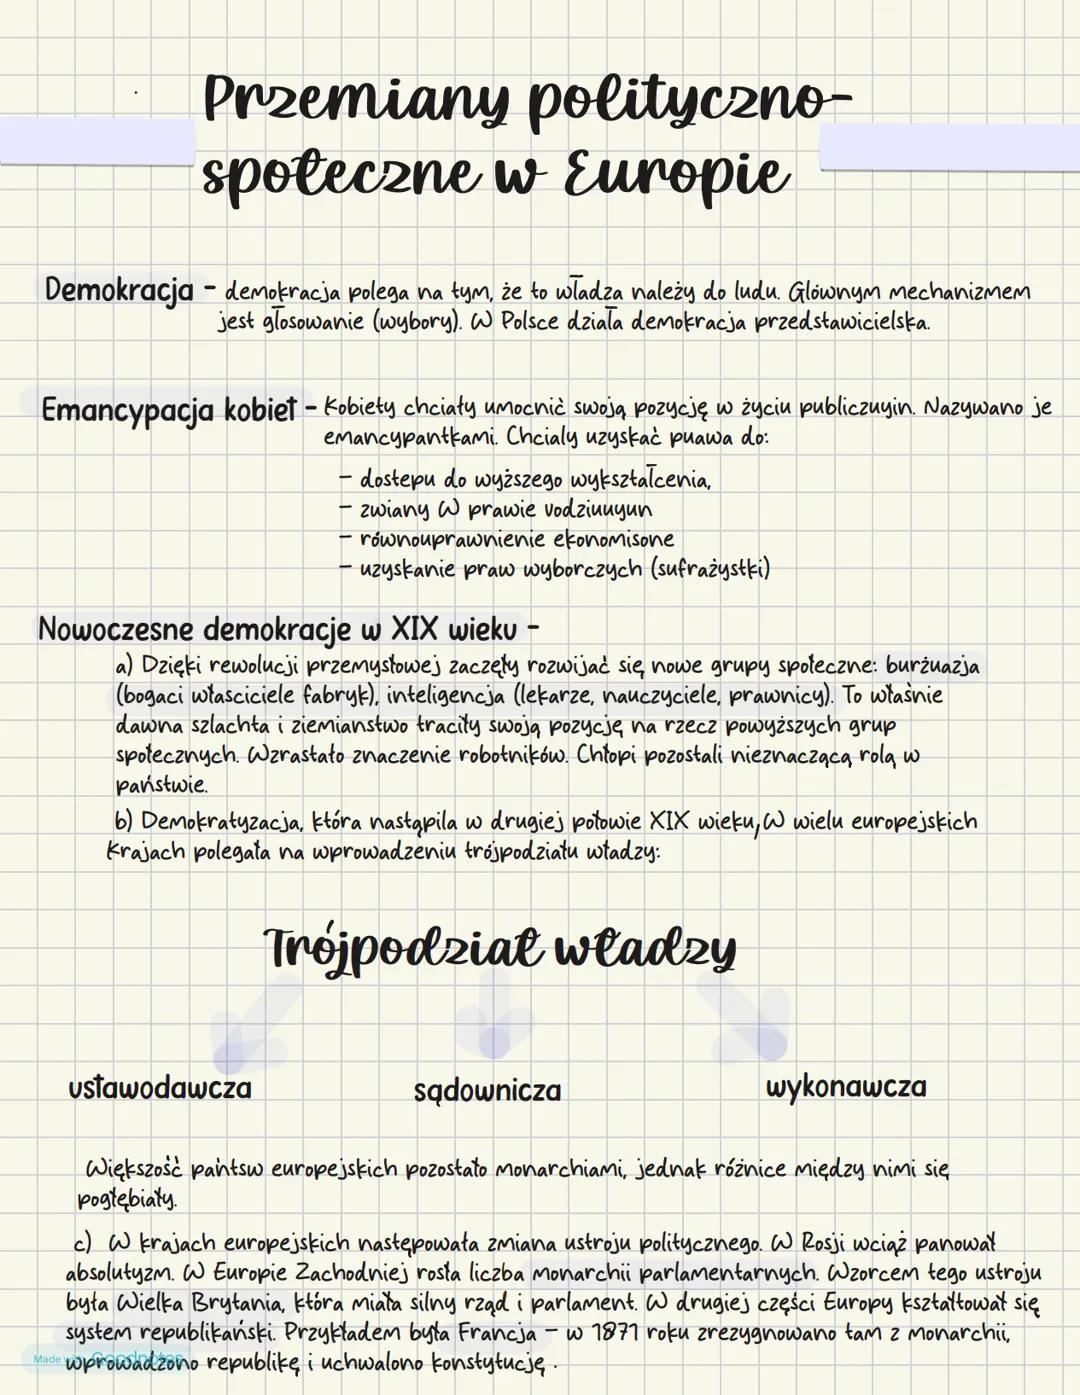 Przemiany polityczno-
społeczne w Europie
Demokracja - demokracja polega na tym, że to władza należy do ludu. Glównym mechanizmem
jest głosowanie (wybory). W Polsce działa demokracja przedstawicielska.
Emancypacja kobiet - Kobiety chciały umocnić swoją pozycję w życiu publiczuyin. Nazywano je
emancypantkami. Chcialy uzyskać puawa do:
- dostepu do wyższego wykształcenia,
- zwiany W prawie vodziuuyun
- równouprawnienie ekonomisone
- uzyskanie praw wyborczych (sufrażystki)
Nowoczesne demokracje w XIX wieku -
a) Dzięki rewolucji przemysłowej zaczęły rozwijać się nowe grupy społeczne: burżuazja
(bogaci własciciele fabryk), inteligencja (lekarze, nauczyciele, prawnicy). To właśnie
dawna szlachta i ziemianstwo traciły swoją pozycję na rzecz powyższych grup
społecznych. Wzrastało znaczenie robotników. Chłopi pozostali nieznaczącą rolą w
państwie.
b) Demokratyzacja, która nastąpila w drugiej połowie XIX wieku, W wielu europejskich
krajach polegała na wprowadzeniu trójpodziału władzy:
Trójpodział władzy
ustawodawcza
sądownicza
wykonawcza
Większość pańtsw europejskich pozostało monarchiami, jednak różnice między nimi się
pogłębiały.
c) W krajach europejskich następowała zmiana ustroju politycznego. W Rosji wciąż panował
absolutyzm. W Europie Zachodniej rosła liczba monarchii parlamentarnych. Wzorcem tego ustroju
była Wielka Brytania, która miała silny rząd i parlament. W drugiej części Europy kształtował się
system republikański. Przykładem była Francja - w 1871 roku zrezygnowano tam z monarchii,
wprowadzono republikę i uchwalono konstytucję.
Made with Goodnotes